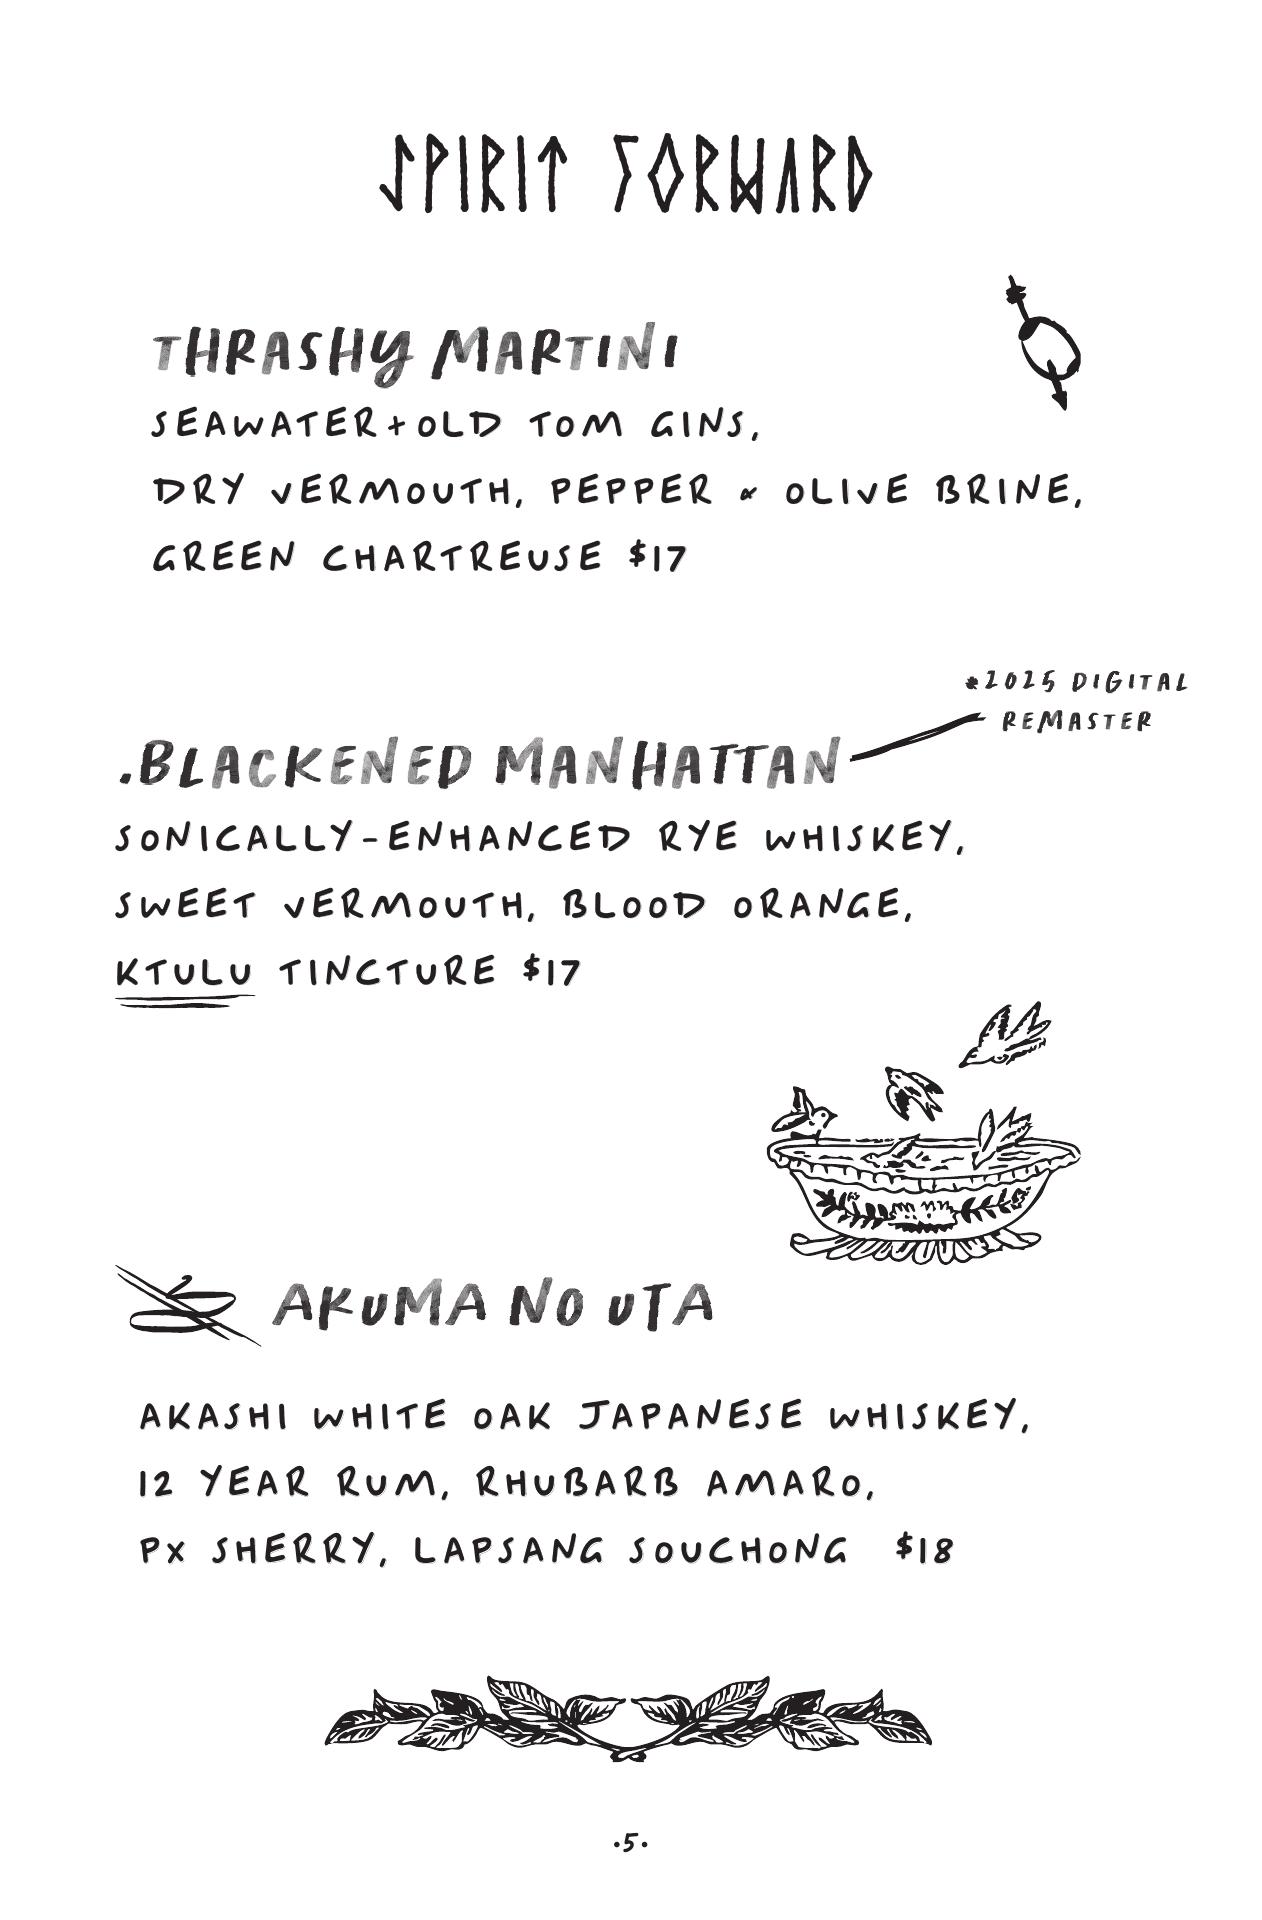 SPIRIT FORWARD
THRASHY MARTINI
SEAWATER+OLD TOM GINS,
DRY VERMOUTH, PEPPER & OLIVE BRINE,
GREEN CHARTREUSE $17
*2025 DIGITAL
REMASTER
.BLACKENED MANHATTAN
SONICALLY-ENHANCED RYE WHISKEY,
SWEET VERMOUTH, BLOOD ORANGE,
KTULU TINCTURE $17
AKUMA NO UTA
AKASHI WHITE OAK JAPANESE WHISKEY,
12 YEAR RUM, RHUBARB AMARO,
PX SHERRY, LAPSANG SOUCHONG $18
·5·